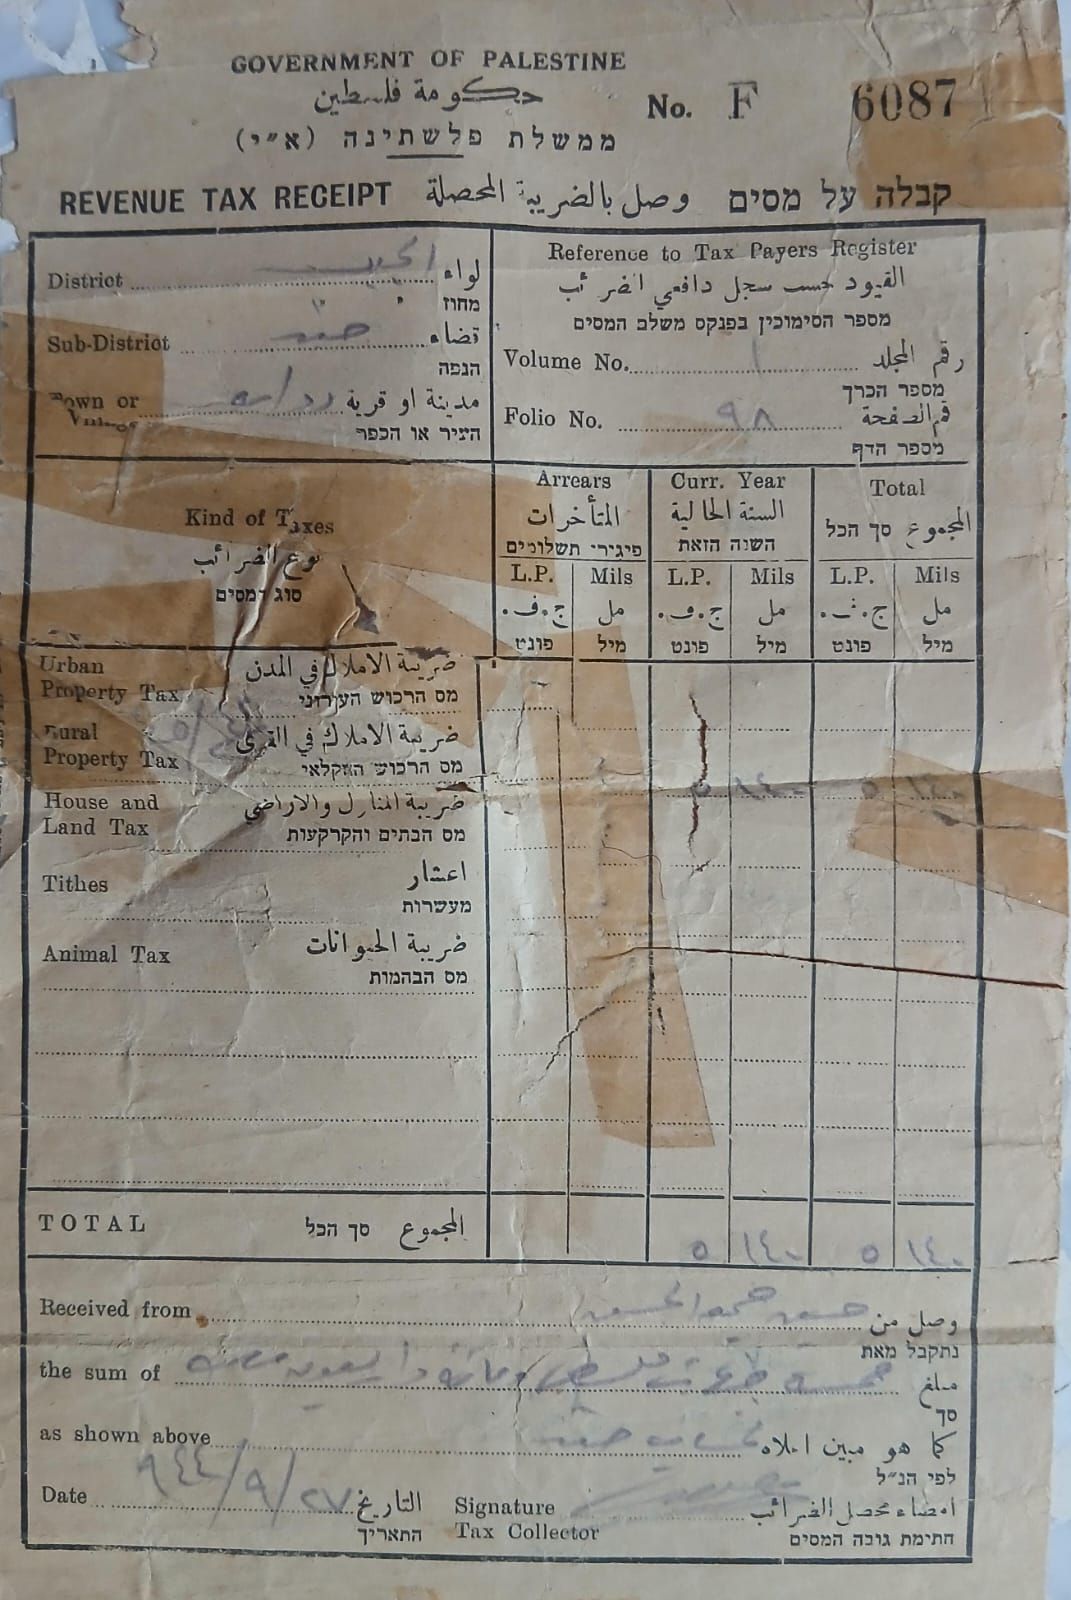 GOVERNMENT OF PALESTINE
حكومة فلسطين
ממשלת פלשתינה (א״י)
No. F 6087
REVENUE TAX RECEIPT وصل بالضريبة المحصلة קבלה על מסים
District لواء
מחוז
Sub-District قضاء صفد
הנפה
Town or مدينة او قرية
Village
העיר או הכפר
Reference to Tax Payers Register
القيود حسب سجل دافعي الضرائب
מספר הסימוכין בפנקס משלמי המסים
Volume No. ١ رقم المجلد
מספר הכרך
Folio No. ٩٨ رقم الصفحة
מספר הדף
Kind of Taxes
نوع الضرائب
סוג המסים
Arrears
المتأخرات
פיגורי תשלומים
Curr. Year
السنة الحالية
השנה הזאת
Total
المجموع סך הכל
L.P. Mils L.P. Mils L.P. Mils
ج.ف. مل ج.ف. مل ج.ف. مل
פונט מיל פונט מיל פונט מיל
Urban ضريبة الاملاك في المدن
Property Tax מס הרכוש העירוני
Rural ضريبة الاملاك في القرى
Property Tax מס הרכוש החקלאי
٥ ١٤٠ ٥ ١٤٠
House and ضريبة المنازل والاراضي
Land Tax מס הבתים והקרקעות
Tithes اعشار
מעשרות
Animal Tax ضريبة الحيوانات
מס הבהמות
TOTAL סך הכל المجموع ٥ ١٤٠ ٥ ١٤٠
Received from وصل من
נתקבל מאת
the sum of مبلغ خمسة جنيهات فلسطينية ومائة واربعون
סך
as shown above كما هو مبين اعلاه
לפי הנ״ל
Date ٩٤٤/٩/٢٧ التاريخ
התאריך
Signature امضاء محصل الضرائب
Tax Collector חתימת גובה המסים